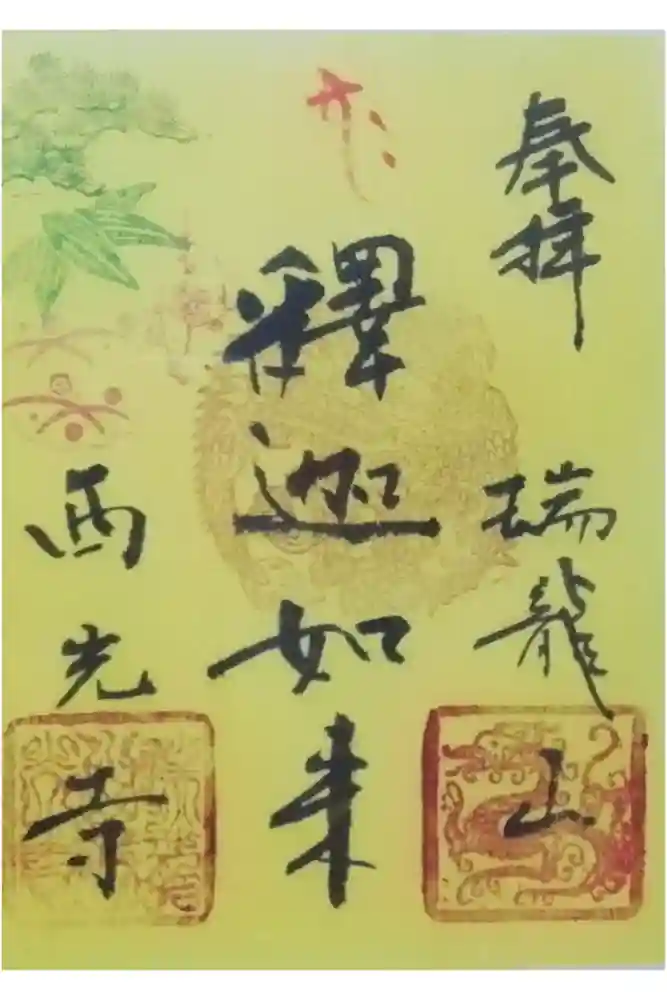 奉拝
瑞龍山
釋迦如来
西光寺